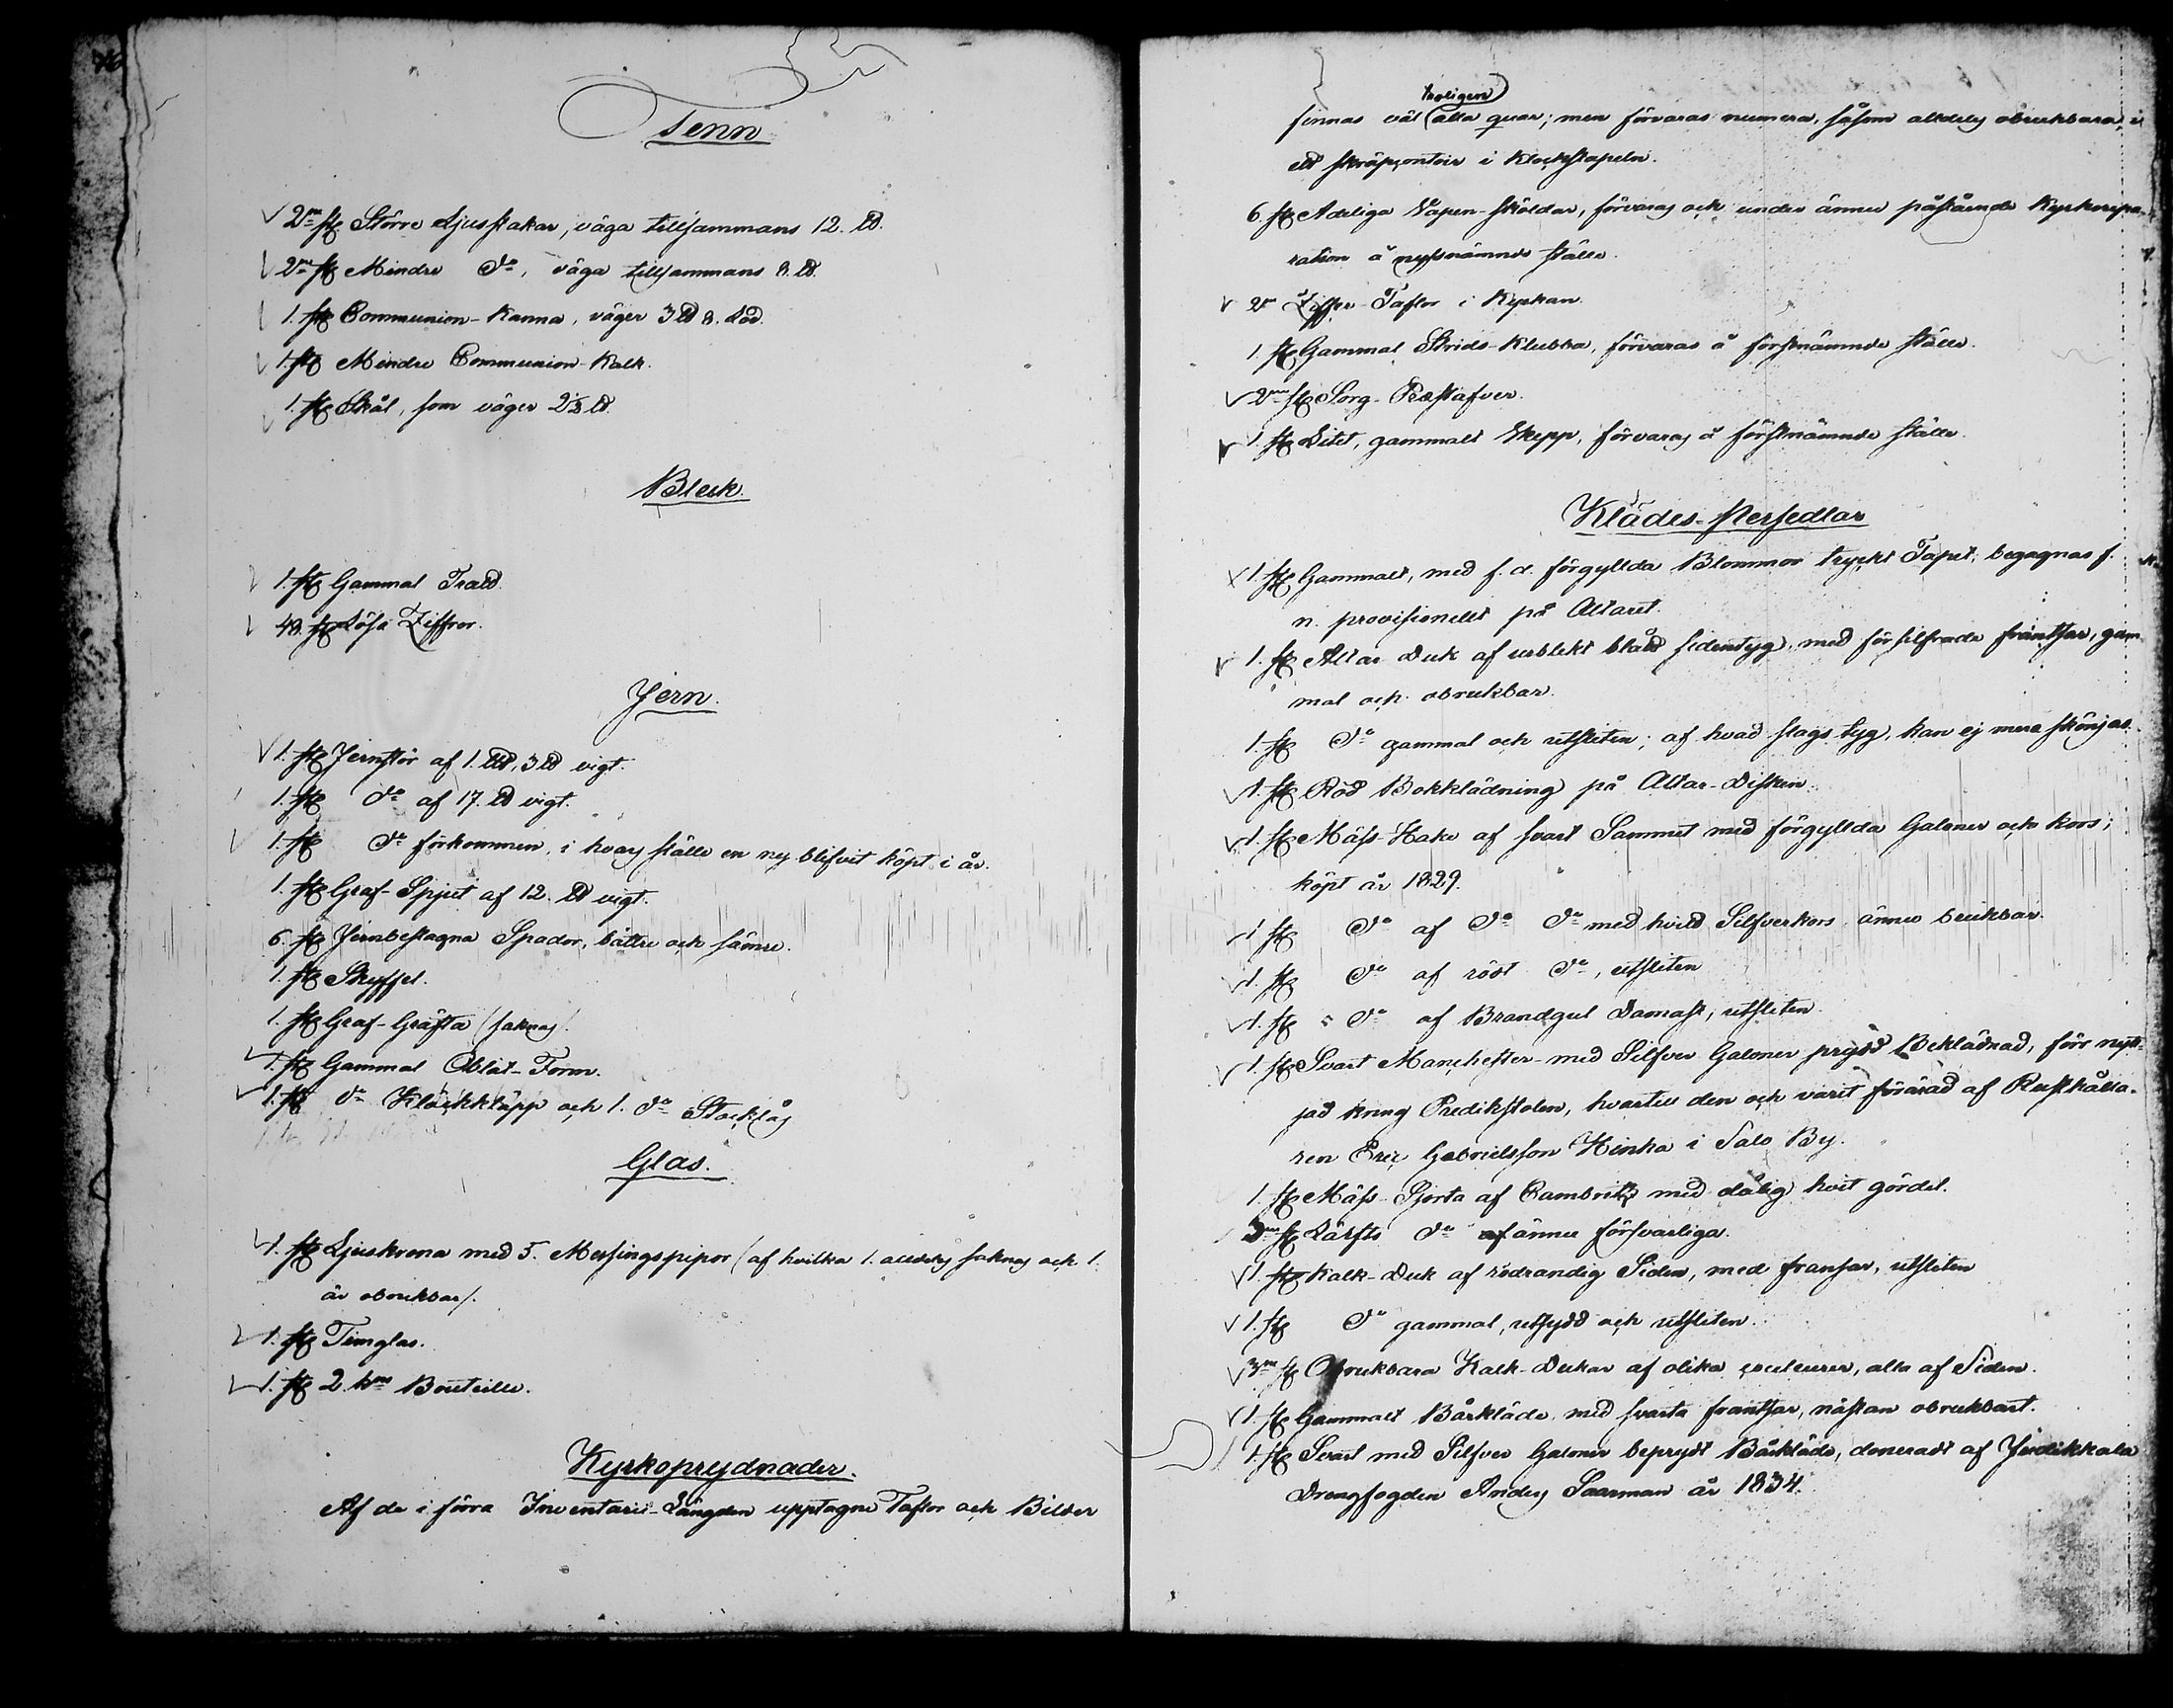 Tenn
2ne st Större Ljusstakar, väga tillsammans 12. ℔.
2ne st Mindre do, väga tillsammans 8. ℔.
1. st Communion-Kanna, väger 3 ℔ 8. Lod.
1. st Mindre Communion-Kalk.
1. st Skål, som väger 2½ ℔.
Bleck.
1. st Gammal Tratt.
48. st Lösa Ziffror.
Jern.
1. st Jernstör af 1. L℔, 3 ℔ vigt.
1. st do af 17. ℔ vigt.
1. st do förkommen, i hvars ställe en ny blifvit köpt i år.
1. st Graf-Spjut af 12. ℔ vigt.
6. st Jernbeslagna Spador, bättre och sämre.
1. st Skyffel.
1. st Graf-Gräfta (saknas).
1. st Gammal Oblat-Form.
1. st do Klockkläpp och 1. do Stocklås
Glas.
1. st Ljuskrona med 5. Messingspipor (af hvilka 1. alldeles saknas och 1.
är obrukbar).
1. st Timglas.
1. st 2. Bouteille.
Kyrkoprydnader.
Af de i förra Inventarii-Längden upptagne Taflor och Bilder
troligen
finnas väl alla quar; men förvaras numera, såsom alldeles obrukbara, i
ett skräpcontoir i Klockstapeln.
6. st Adeliga Vapen-Sköldar, förvaras ock under ännu påstående Kyrkorepa-
ration å nyssnämnde ställe.
2ne Ziffer-Taflor i Kyrkan.
1. st Gammal Strids-Klubba, förvaras å förstnämnde ställe.
2ne st Sorg-Prestafver.
1. st Litet, gammalt Skepp, förvaras å förstnämnde ställe.
Klädes-Persedlar
1. st Gammalt, med f.d. förgyllda Blommor tryckt Tapet; begagnas f.
n. provisionellt på Altaret.
1. st Altar Duk af urblekt blått sidentyg, med försilfrade frantsar, gam-
mal och obrukbar.
1. st do gammal och utsliten; af hvad slags tyg, kan ej mera skönjas.
1. st Röd Bokklädning på Altar-Disken.
1. st Mäss-Hake af svart Sammet med förgyllda Galoner och kors;
köpt år 1829.
1 st do af do do med hvitt Silfverkors ännu brukbar.
1. st do af rödt do, utsliten
1. st do af Brandgul Damast, utsliten.
1. st Svart Manchester-med Silfver Galoner prydd Beklädnad, för nytt-
jad kring Predikstolen, hvartill den och varit förärad af Rusthålla-
ren Eric Gabrielsson Hinka i Salo By.
1. st Mäss-Sjorta af Cambrik med dålig hvit gördel.
3ne st Lärfts do ännu försvarliga.
1. st Kalk-Duk af rödrandig Siden, med fransar, utsliten
1. st do gammal, utsydd och utsliten.
3ne st Obrukbara Kalk-Dukar af olika couleurer, alla af Siden.
1. st Gammalt Bårkläde med svarta frantsar, nästan obrukbart.
1. st Svart med Silfver Galoner beprydt Bårkläde, doneradt af Jutikkala
Drengfogden Anders Saarman år 1834.